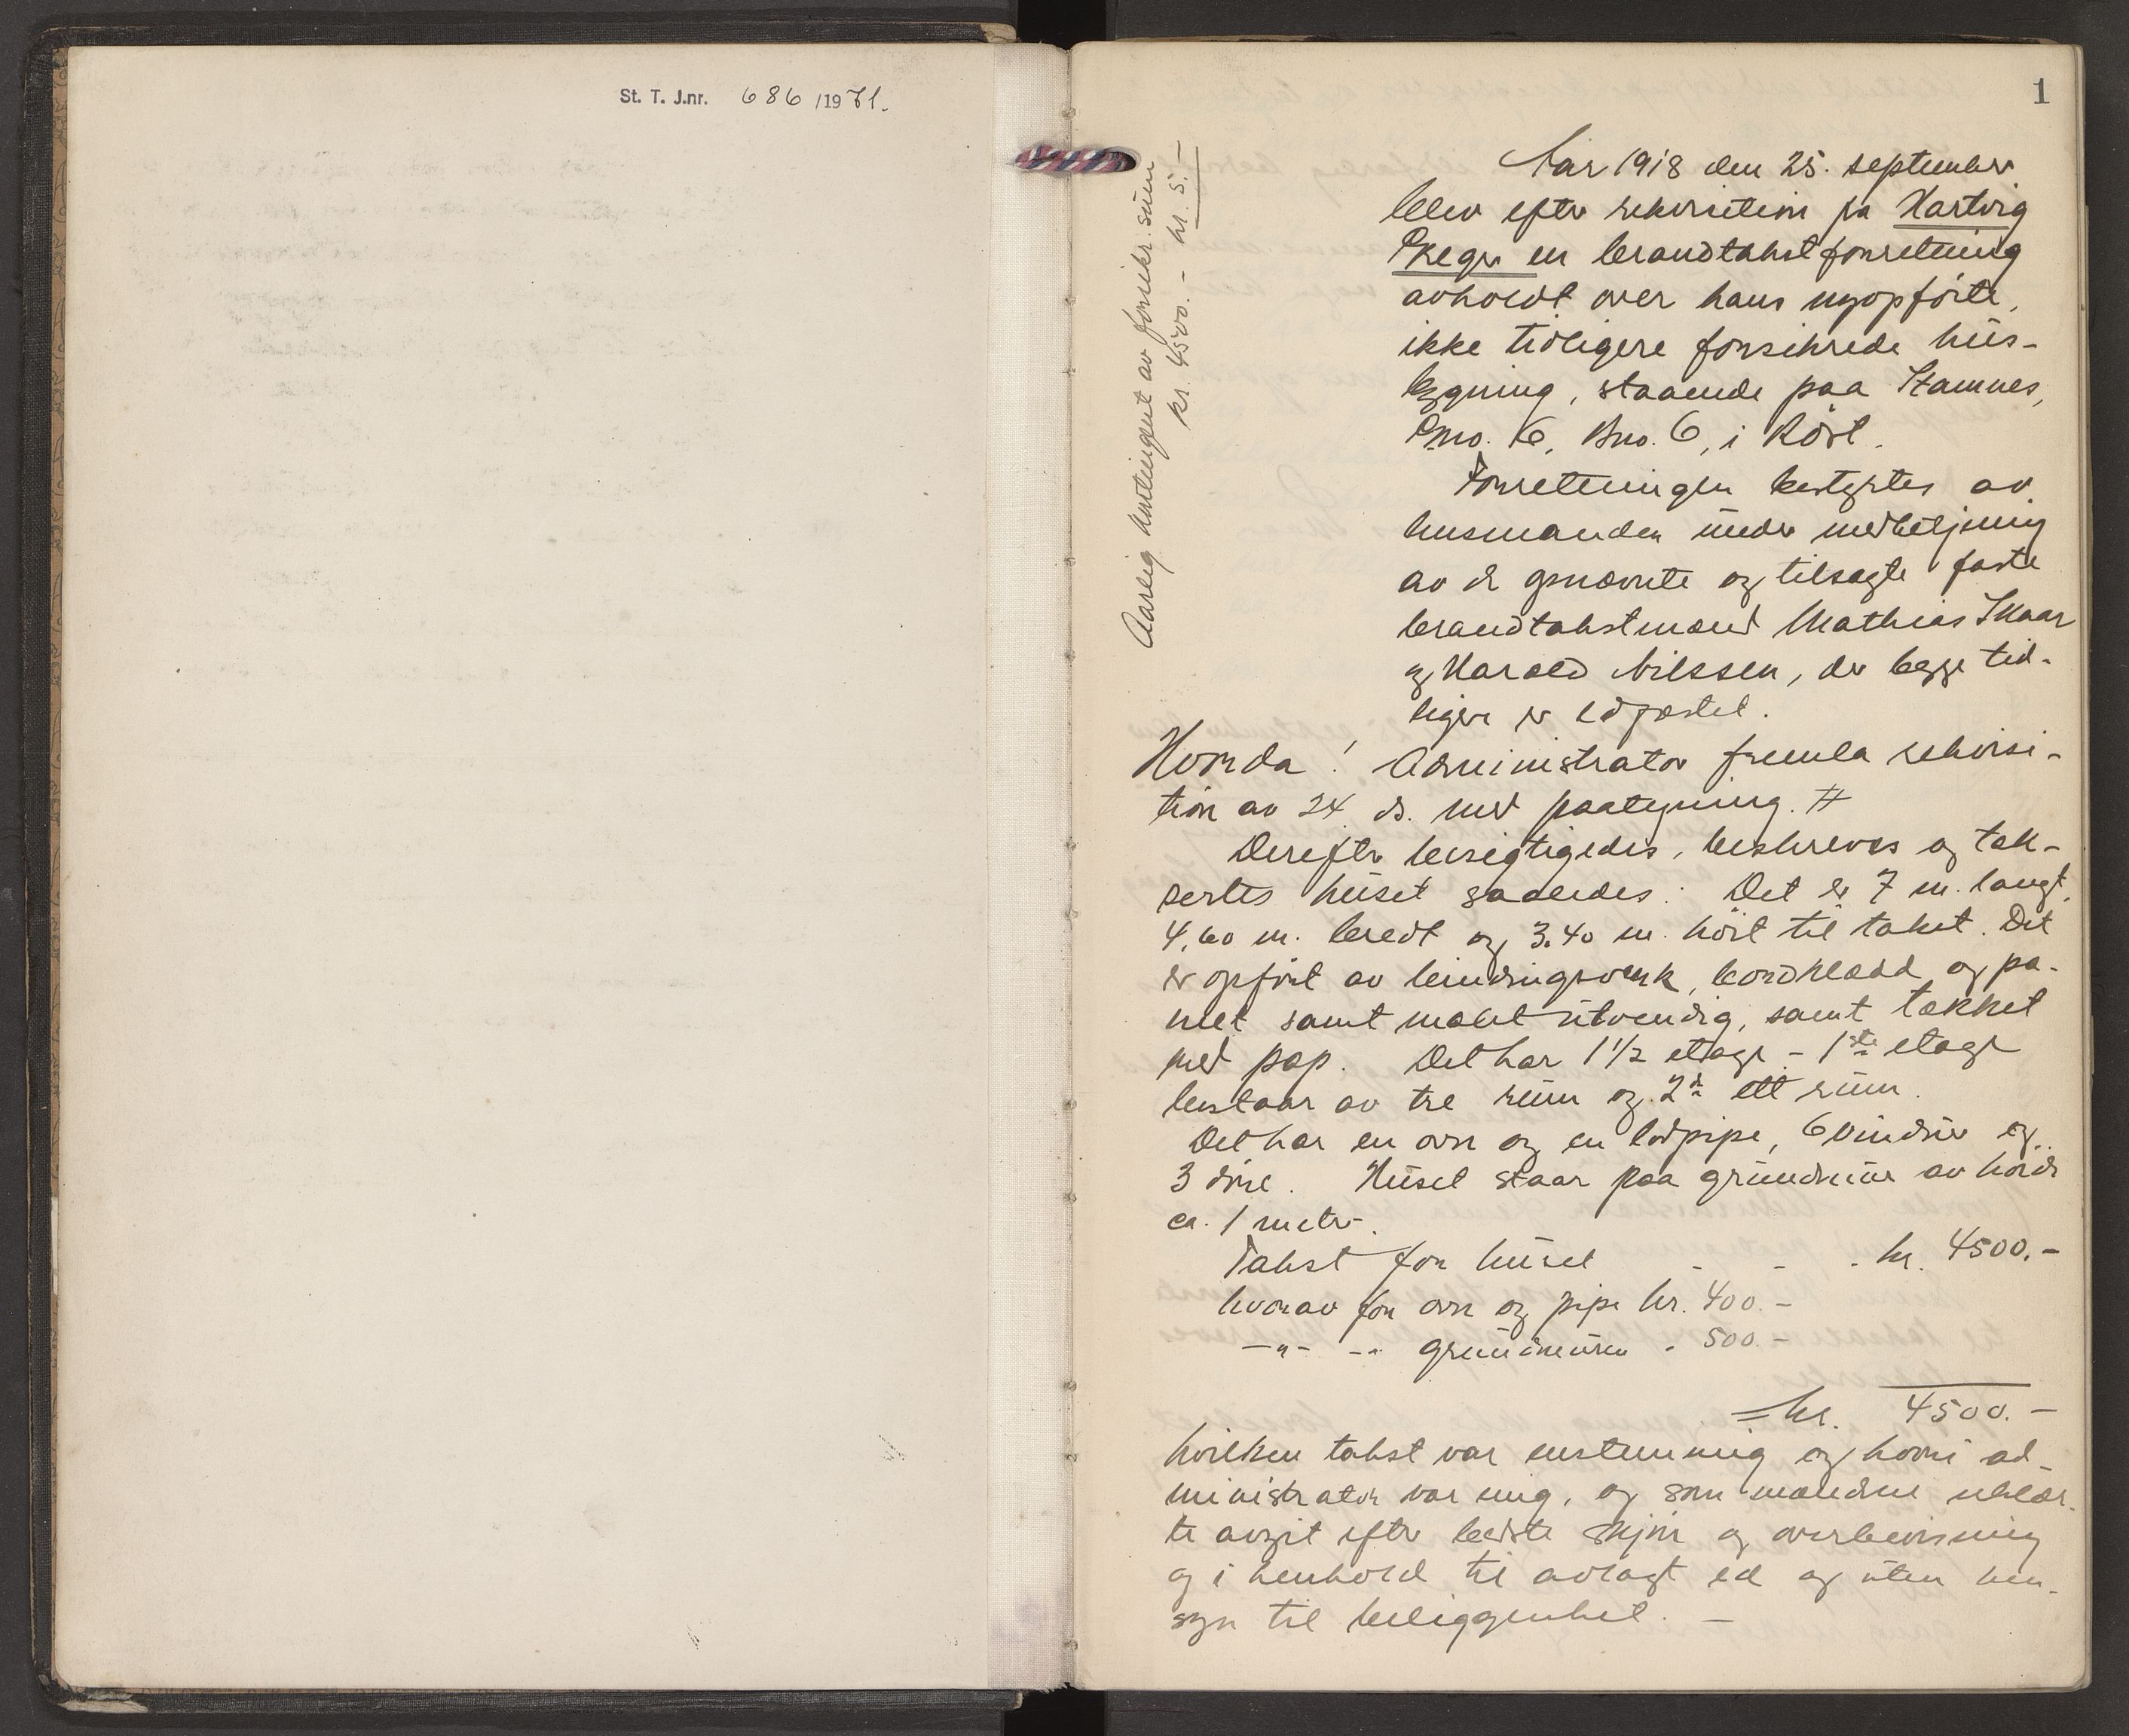 St. T. J.nr. 686 /1971.
1
Aar 1918 den 25. september
blev efter rekvisition fra Hartvig
Greger en brandtakstforretning
avholdt over hans nyopførte,
ikke tidligere forsikrede hus-
bygning, staaende paa Stamnes,
Gno. 6, Bno. 6, i Röst.
Forretningen bestyrtes av
lensmanden under medbetjening
av de opnævnte og tilsagte faste
brandtakstmænd Mathias Skaar
og Harald Nilssen, der begge tid-
ligere er edfæstet.
Aarlig kontingent av forsikr.sum
kr. 4500.- kr. 5.-
Hvorda! Administrator fremla rekvisi-
tion av 24. ds. med paategning. #
Derefter besigtigedes, beskreves og tak-
sertes huset saaledes: Det er 7 m. langt,
4,60 m. bredt og 3.40 m. höit til taket. Det
er opfört av bindingsverk, bordklædd og pa-
nelt samt malet utvendig, samt tækket
med pap. Det har 1 1/2 etage - 1ste etage
bestaar av tre rum og 2den ett rum.
Det har en ovn og en lodpipe, 6 vinduer og
3 döre. Huset staar paa grundmur av höide
ca. 1 meter.
Takst for huset - - - kr. 4500.-
hvorav for ovn og pipe kr. 400.-
-"- -" grundmuren " 500.-
= kr. 4500.-
hvilken takst var enstemmig og hvori ad-
ministrator var enig, og som mændene erklær-
te avgit efter bedste skjön og overbevisning
og i henhold til avlagt ed og uten hen-
syn til beliggenhet. -